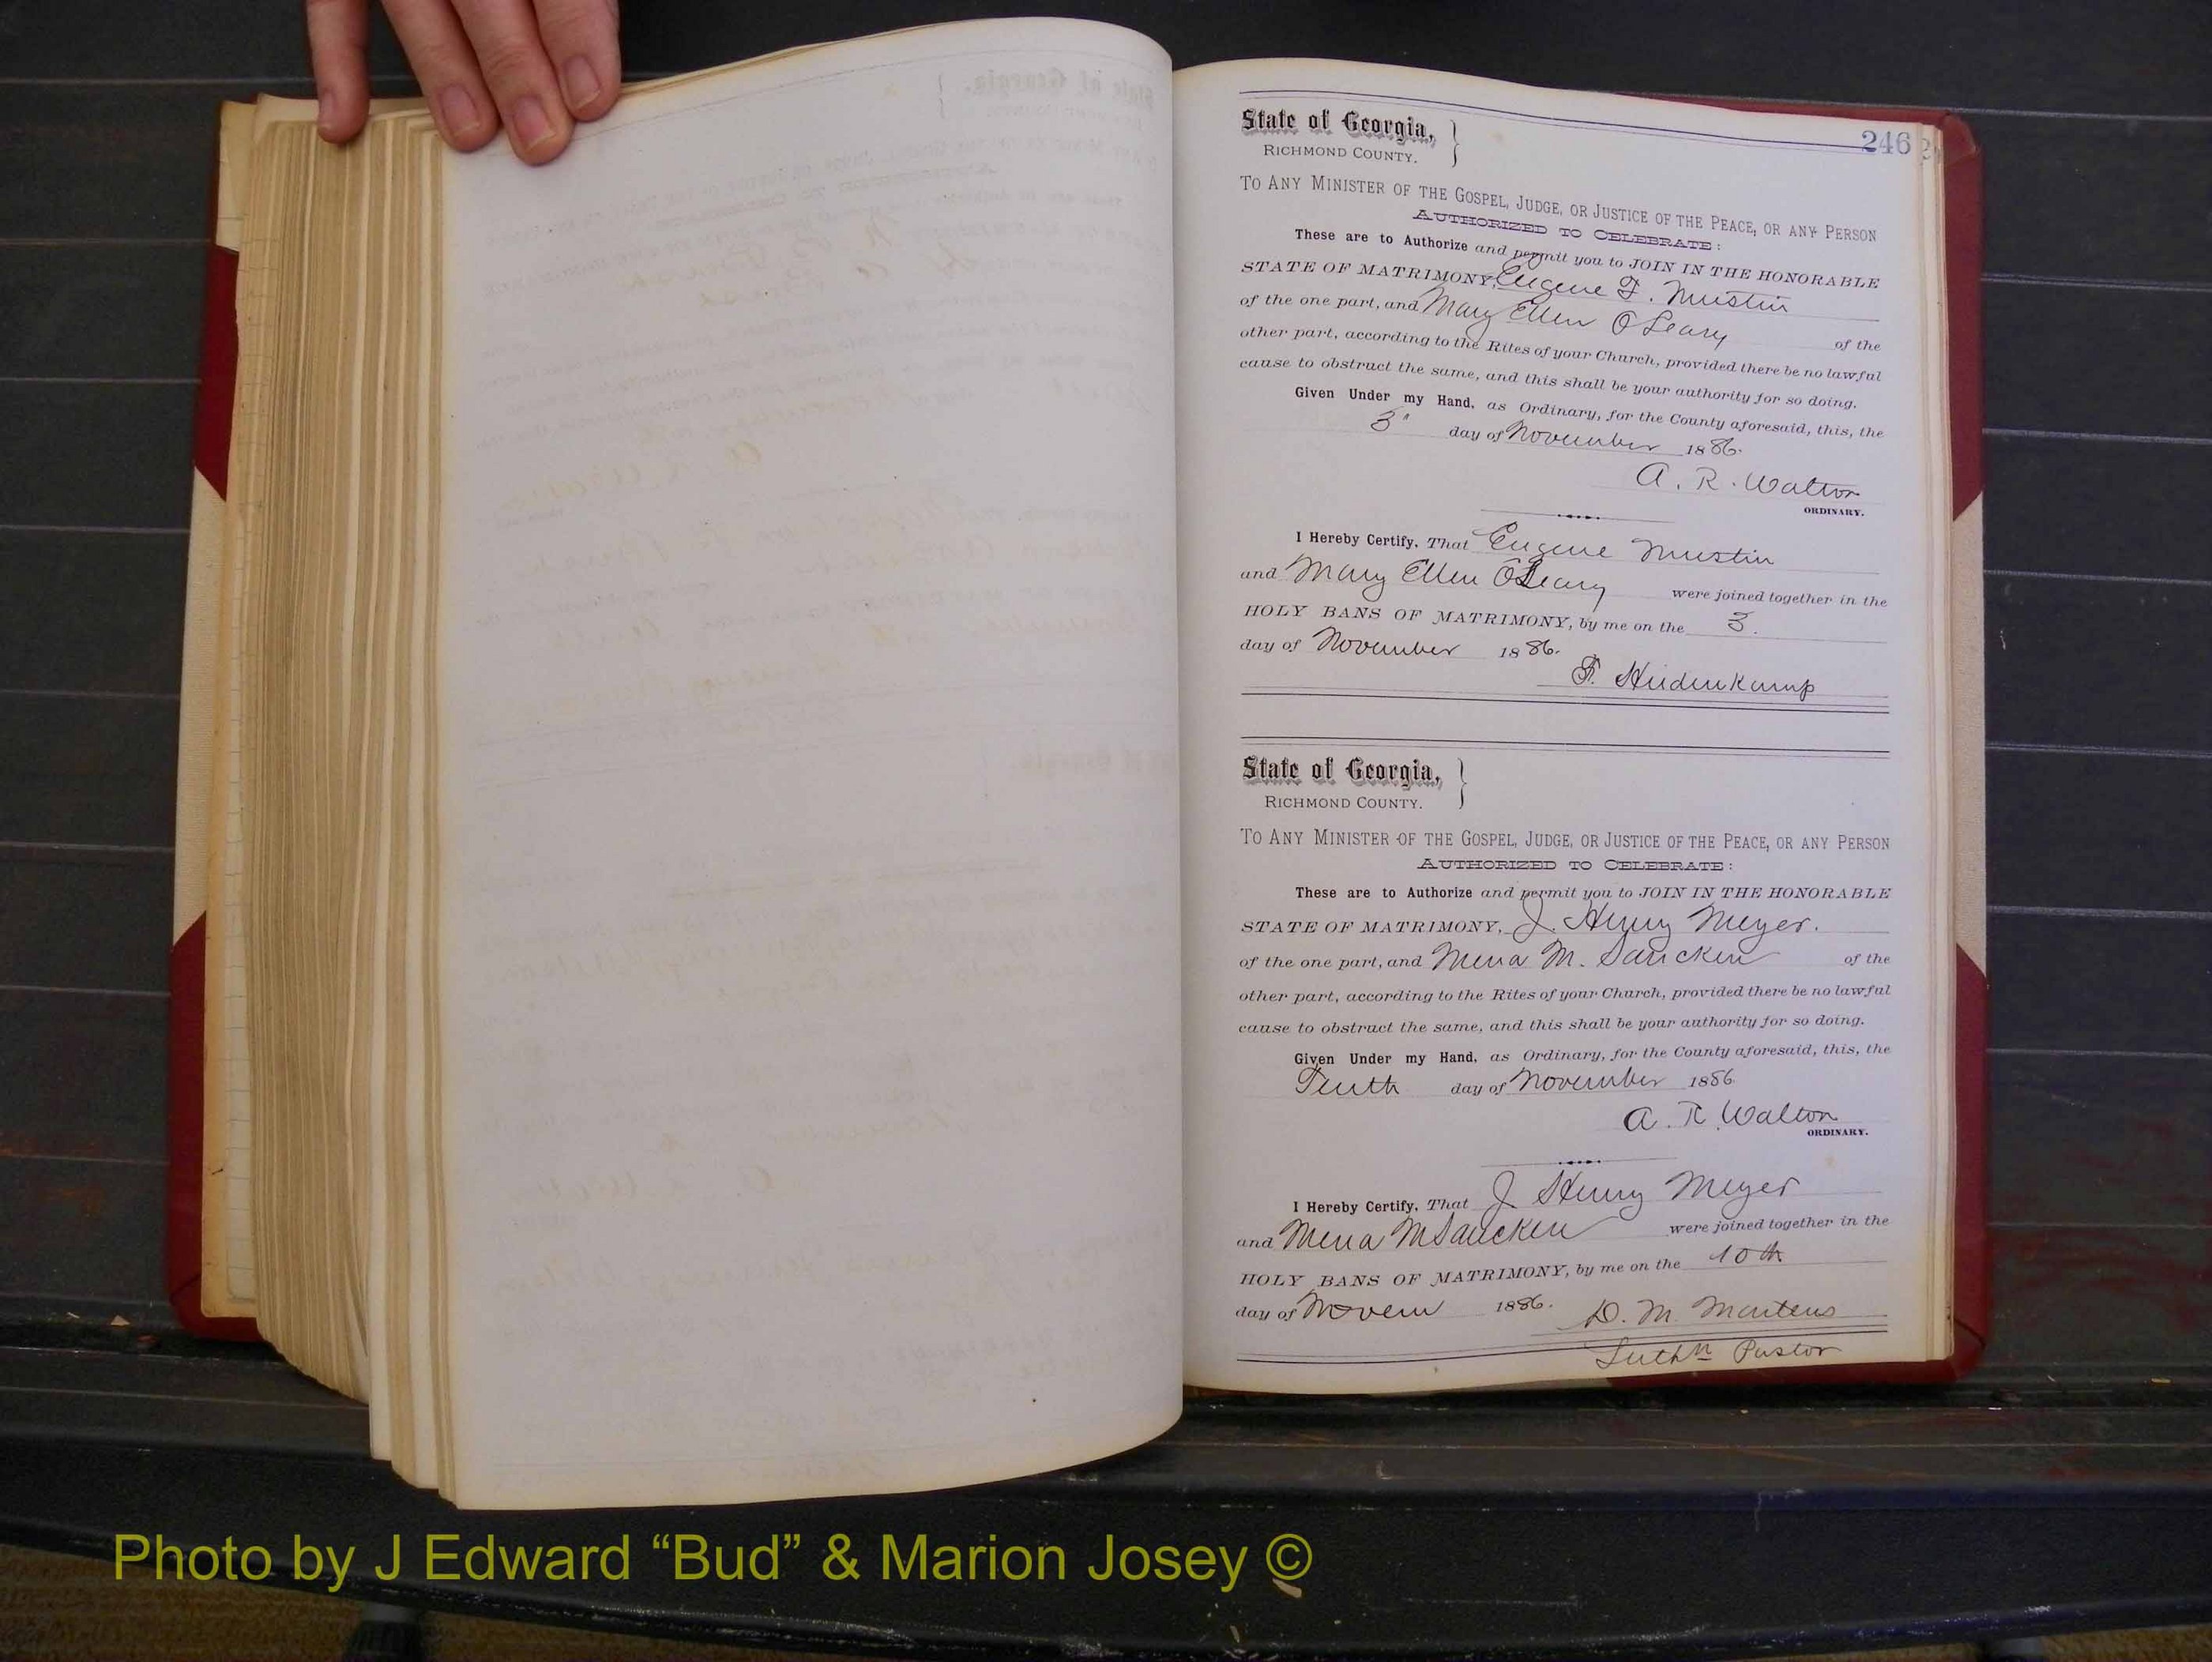 246
State of Georgia,
RICHMOND COUNTY.
TO ANY MINISTER OF THE GOSPEL, JUDGE, OR JUSTICE OF THE PEACE, OR ANY PERSON
AUTHORIZED TO CELEBRATE:
These are to Authorize and permit you to JOIN IN THE HONORABLE
STATE OF MATRIMONY, Eugene F. Mustin
of the one part, and Mary Ellen O'Leary of the
other part, according to the Rites of your Church, provided there be no lawful
cause to obstruct the same, and this shall be your authority for so doing.
Given Under my Hand, as Ordinary, for the County aforesaid, this, the
3" day of November 1886.
A. R. Walton
ORDINARY.
I Hereby Certify, That Eugene Mustin
and Mary Ellen O'Leary were joined together in the
HOLY BANS OF MATRIMONY, by me on the 3.
day of November 1886.
F. Heidenkamp
State of Georgia,
RICHMOND COUNTY.
TO ANY MINISTER OF THE GOSPEL, JUDGE, OR JUSTICE OF THE PEACE, OR ANY PERSON
AUTHORIZED TO CELEBRATE:
These are to Authorize and permit you to JOIN IN THE HONORABLE
STATE OF MATRIMONY, J. Henry Meyer.
of the one part, and Mena M. Sancken of the
other part, according to the Rites of your Church, provided there be no lawful
cause to obstruct the same, and this shall be your authority for so doing.
Given Under my Hand, as Ordinary, for the County aforesaid, this, the
Tenth day of November 1886
A. R. Walton
ORDINARY.
I Hereby Certify, That J. Henry Meyer
and Mena M Sancken were joined together in the
HOLY BANS OF MATRIMONY, by me on the 10th
day of Novem 1886. D. M. Martens
Luthn Pastor
Photo by J Edward “Bud” & Marion Josey ©